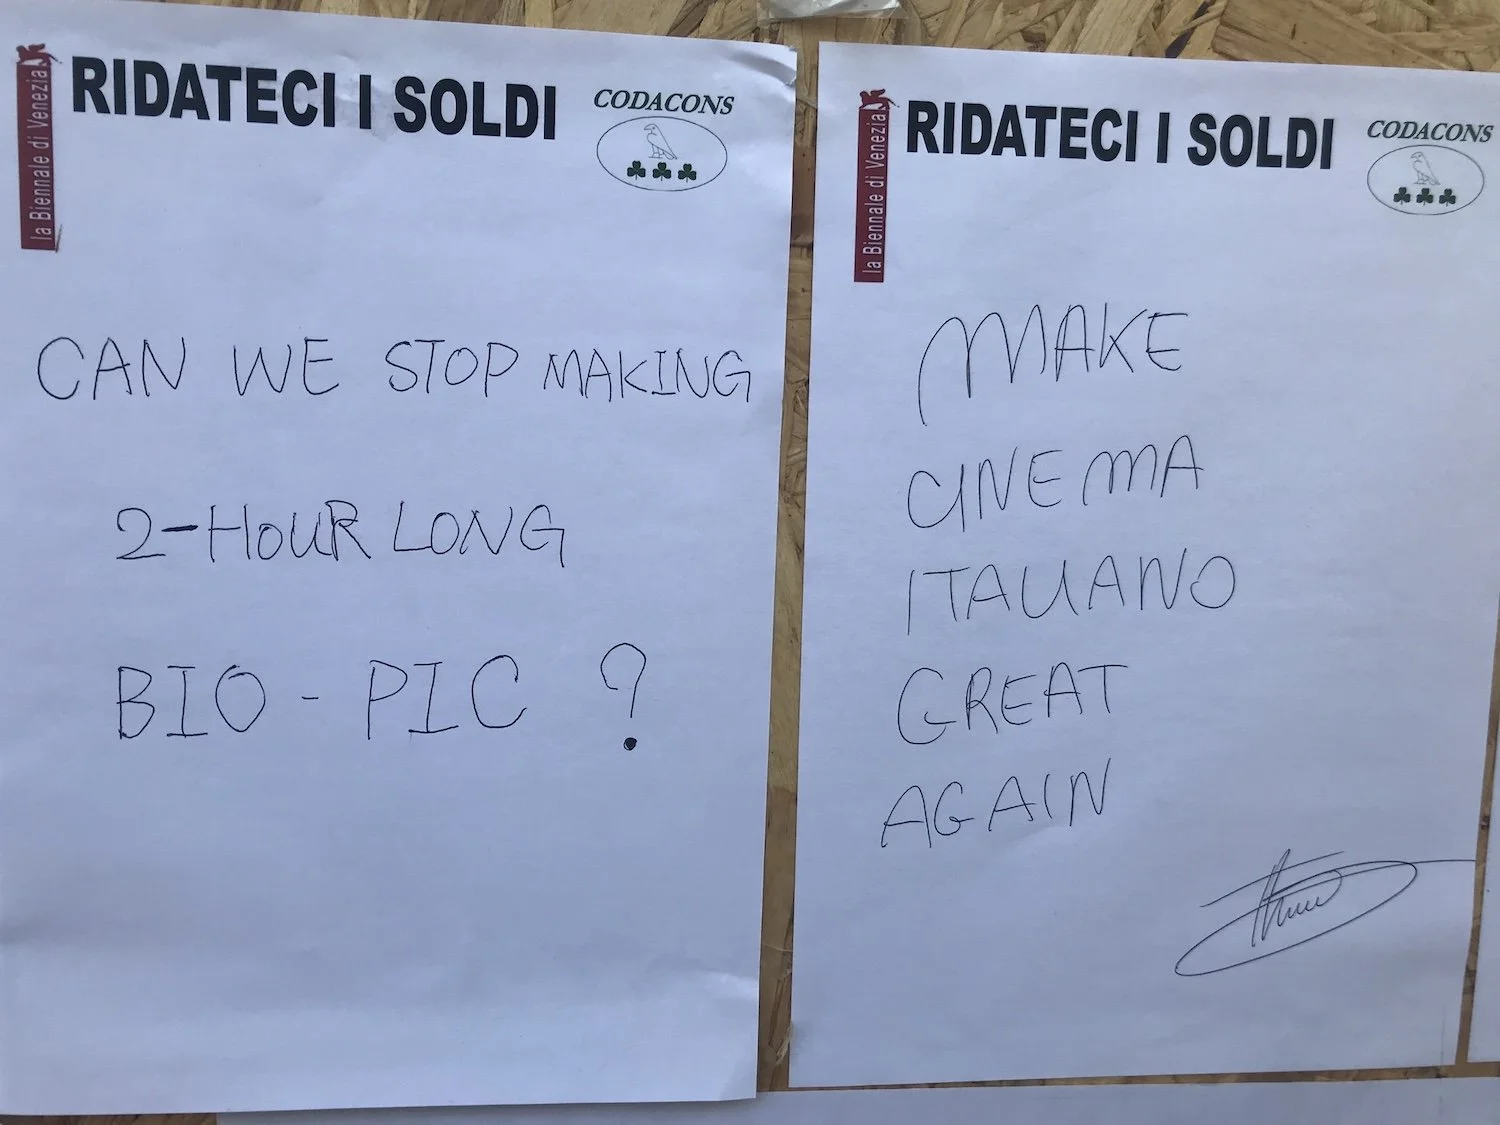 la Biennale di Venezia
RIDATECI I SOLDI
CODACONS
CAN WE STOP MAKING
2-HOUR LONG
BIO-PIC ?
la Biennale di Venezia
RIDATECI I SOLDI
CODACONS
MAKE
CINEMA
ITALIANO
GREAT
AGAIN